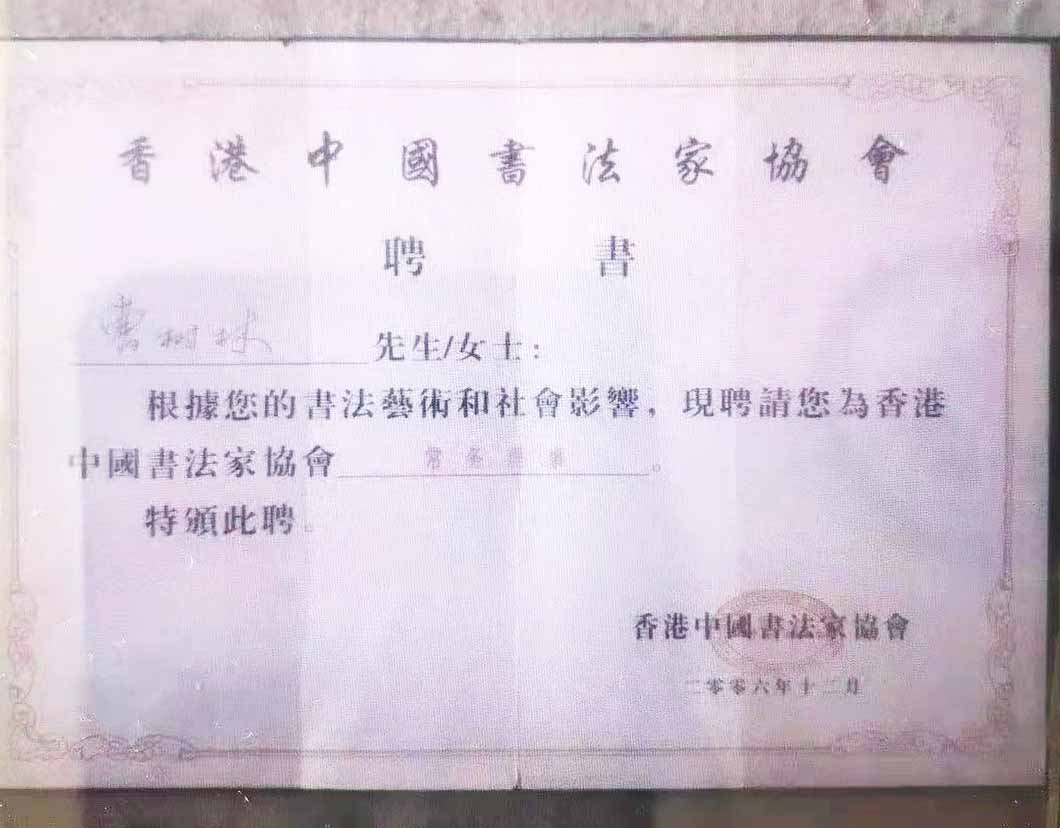 香港中國書法家協會
聘書
曹樹林 先生/女士：
根據您的書法藝術和社會影響，現聘請您為香港
中國書法家協會 常務理事。
特頒此聘。
香港中國書法家協會
二零零六年十二月